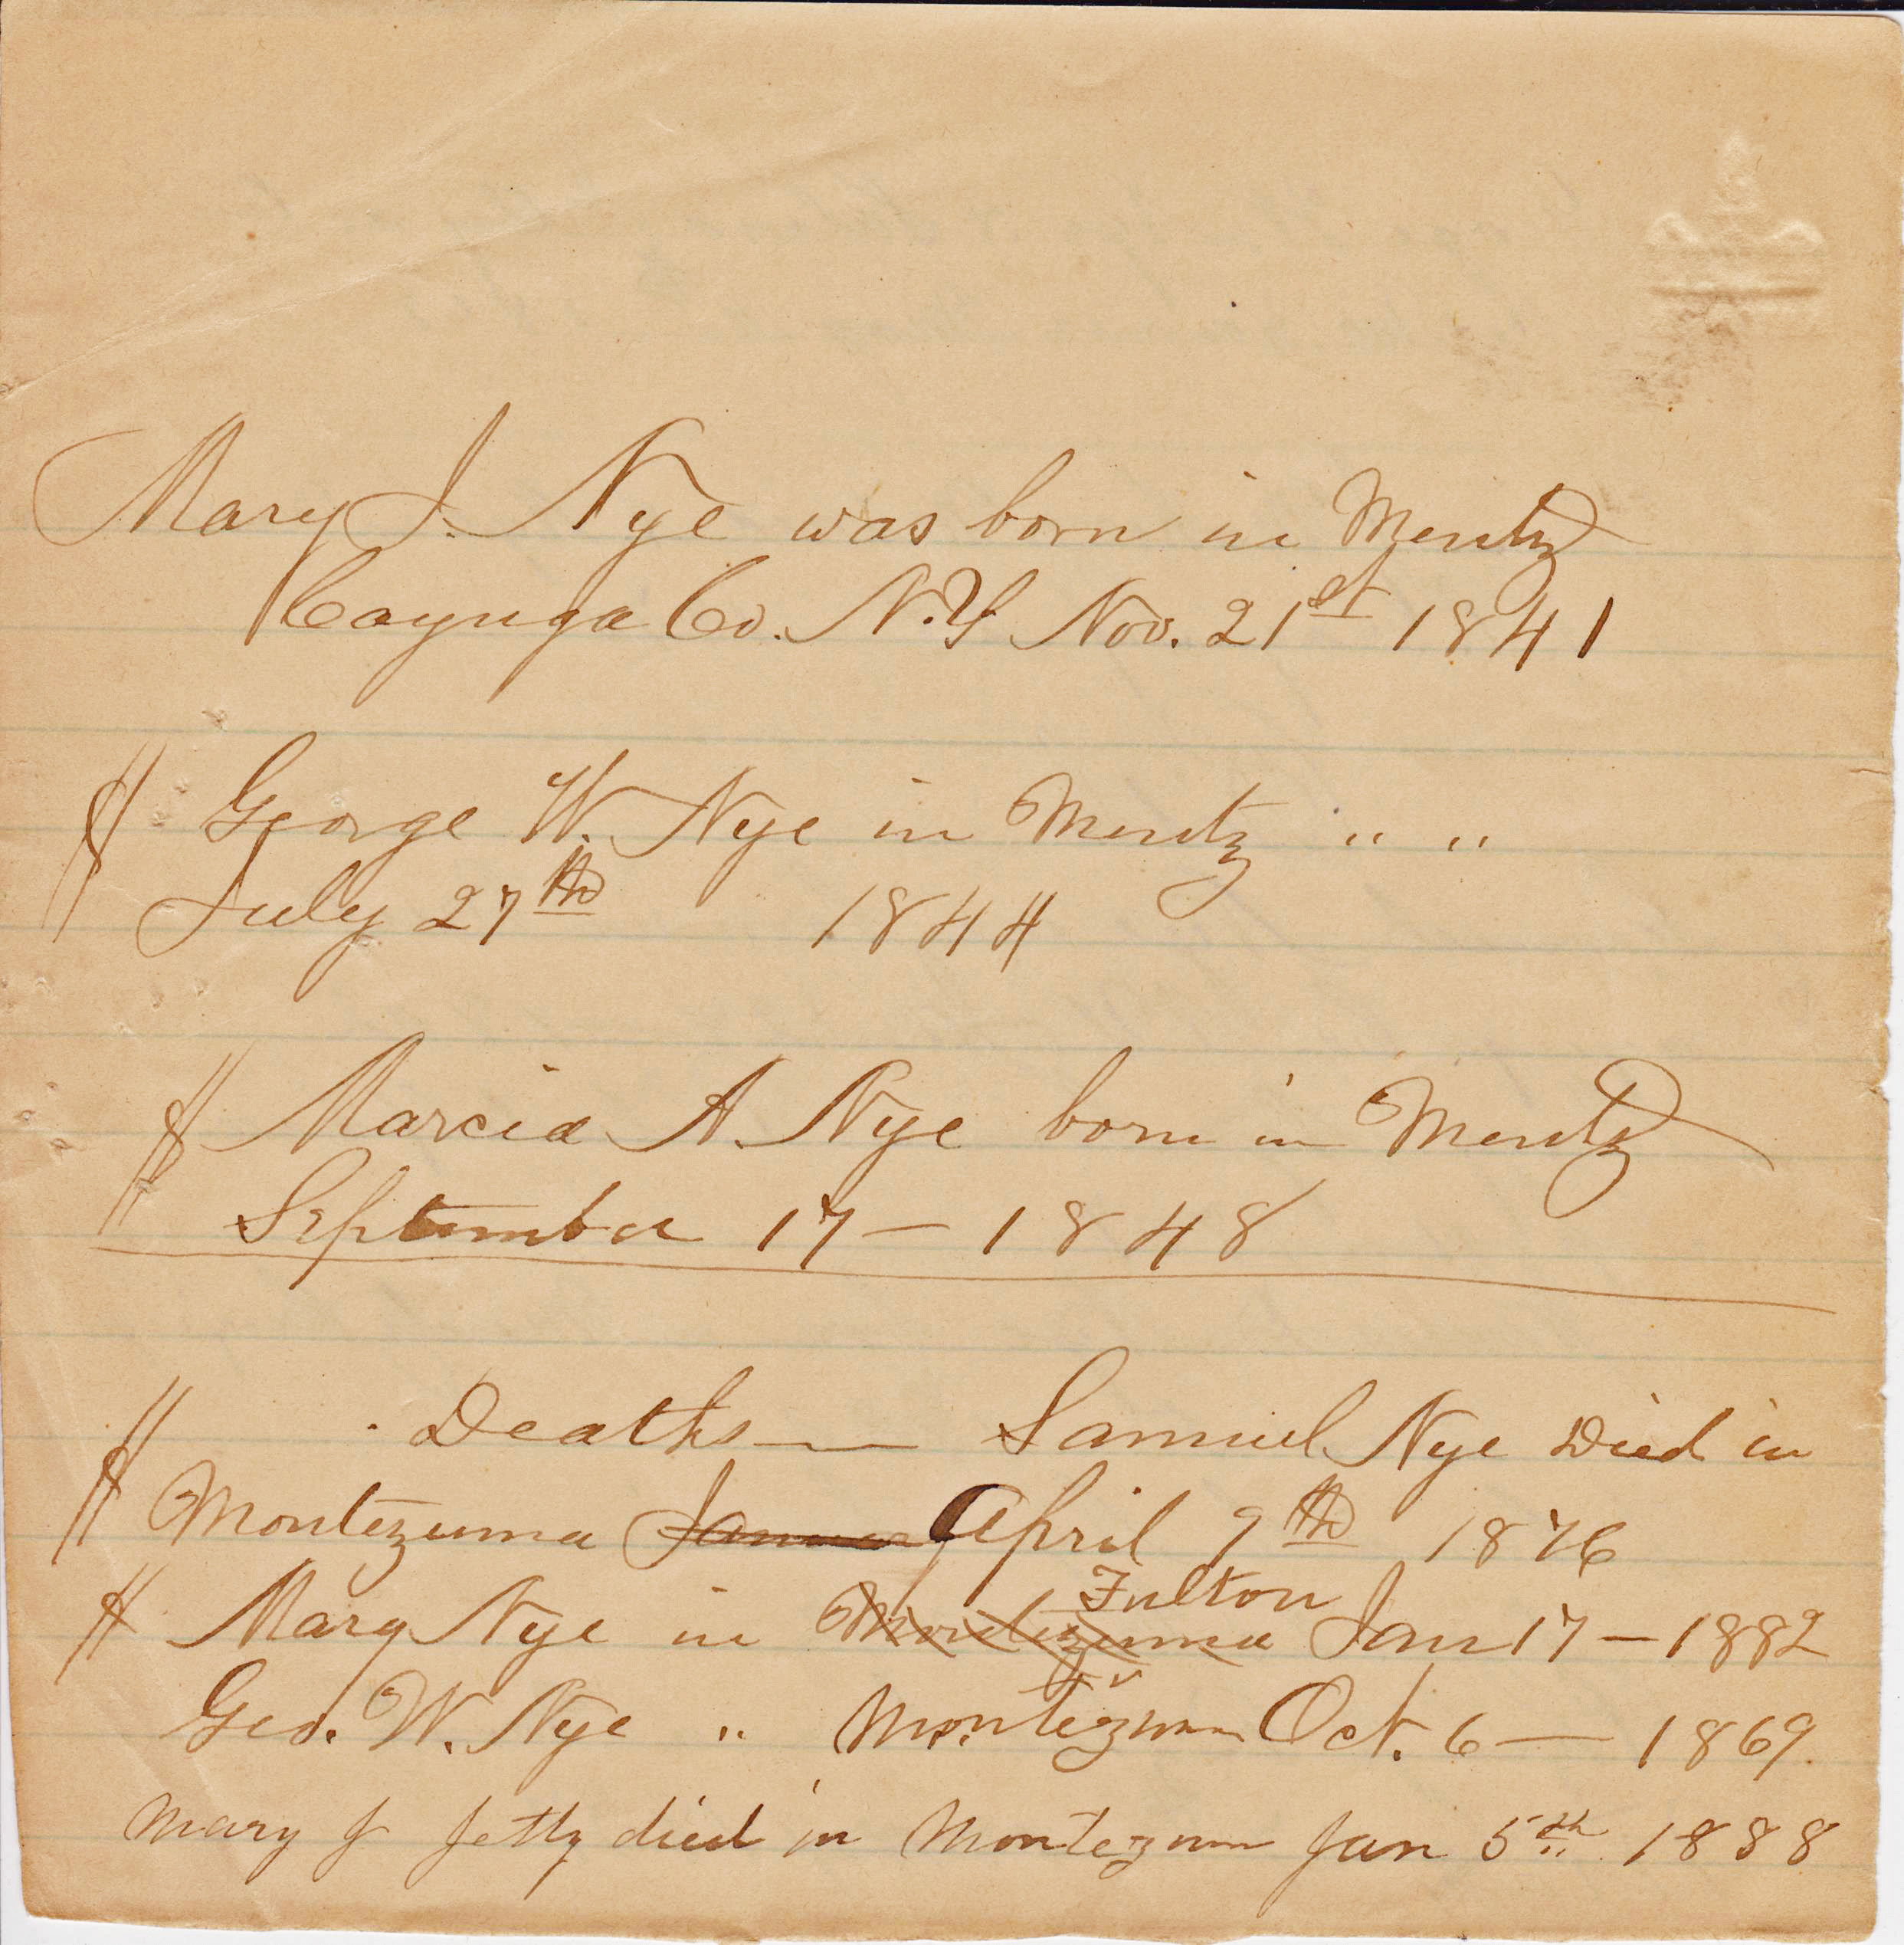 Mary J. Nye was born in Mentz
Cayuga Co. N.Y Nov. 21st 1841
George W. Nye in Mentz " "
July 27th 1844
Marcia A. Nye born in Mentz
September 17 – 1848
Deaths — Samuel Nye Died in
Montezuma Januar April 9th 1876
Fulton
Mary Nye in Montezuma Jan 17 – 1882
Geo. W. Nye " Montezuma Oct. 6 — 1869.
Mary J died in Montezuma Jan 5th 1888